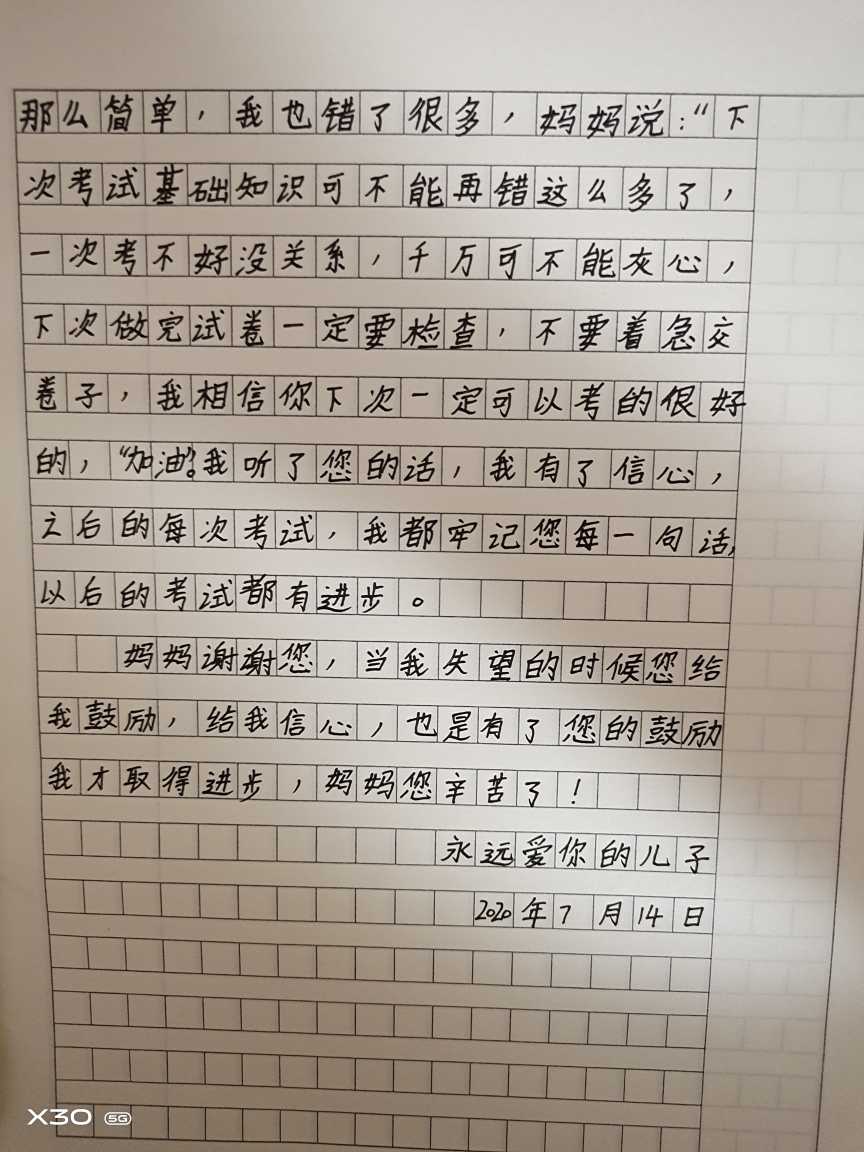 那么简单，我也错了很多，妈妈说："下
次考试基础知识可不能再错这么多了，
一次考不好没关系，千万可不能灰心，
下次做完试卷一定要检查，不要着急交
卷子，我相信你下次一定可以考的很好
的，"加油"。我听了您的话，我有了信心，
之后的每次考试，我都牢记您每一句话，
以后的考试都有进步。
妈妈谢谢您，当我失望的时候您给
我鼓励，给我信心，也是有了您的鼓励
我才取得进步，妈妈您辛苦了！
永远爱你的儿子
2020年7月14日
X30 5G